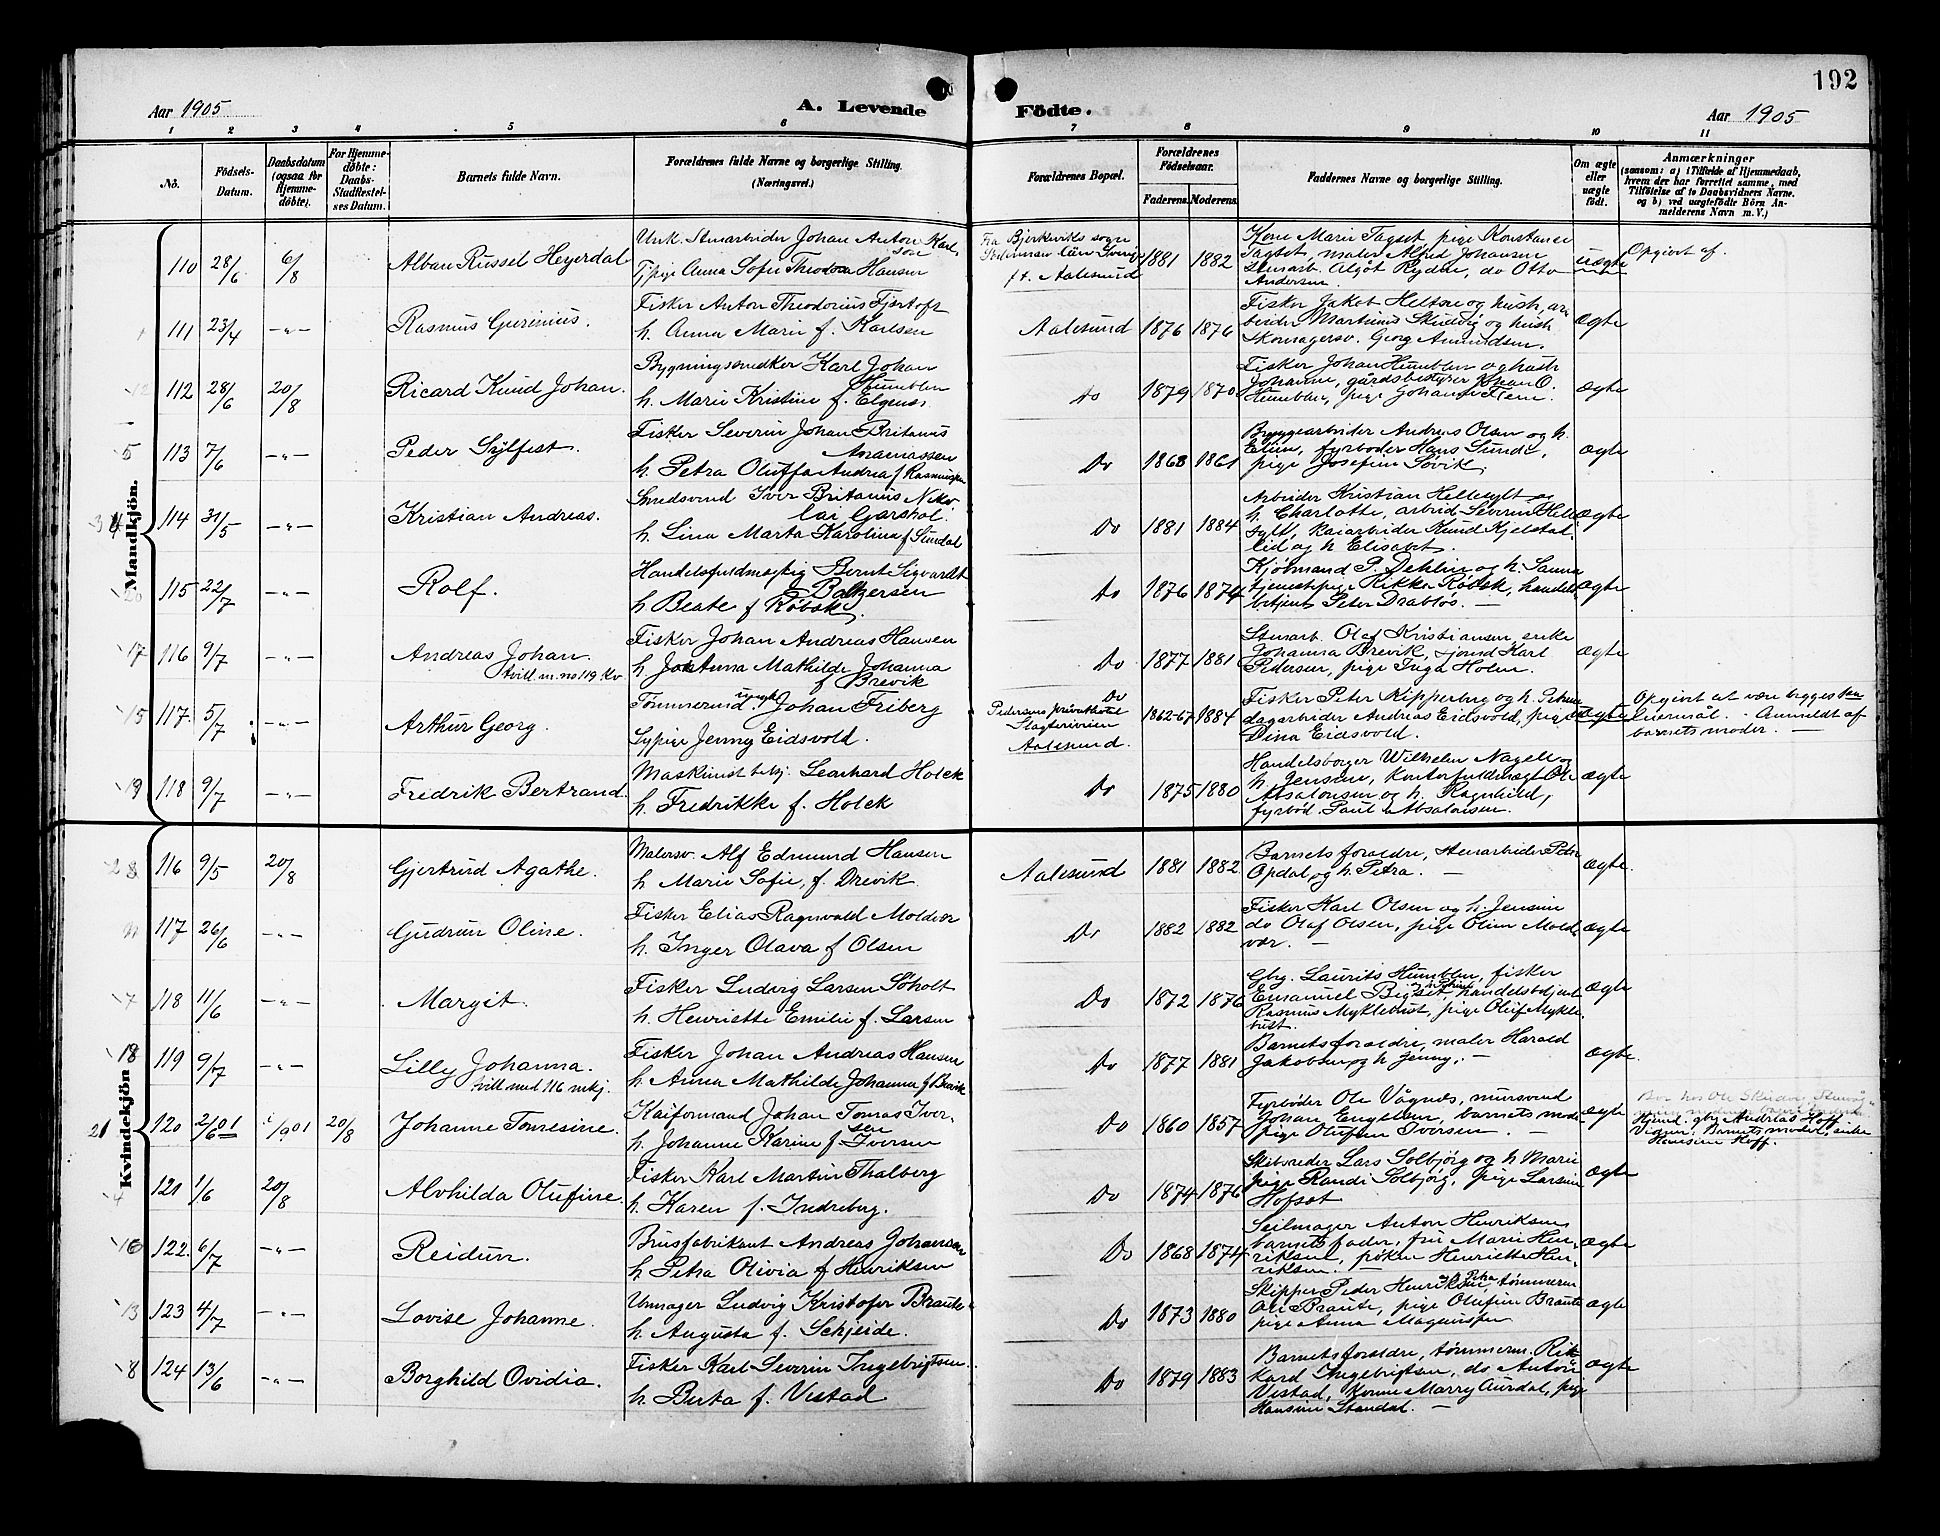 192
Aar 1905
A. Levende
Födte.
Aar 1905
1 2 3 4 5 6 7 8 9 10 11
No.
Födsels-Datum.
Daabsdatum (ogsaa for Hjemme-döbte).
For Hjemme-döbte: Daabs-Stadfæstel-ses Datum.
Barnets fulde Navn.
Forældrenes fulde Navne og borgerlige Stilling. (Næringsvei.)
Forældrenes Bopæl.
Forældrenes Födselsaar.
Faderens. Moderens.
Faddernes Navne og borgerlige Stilling.
Om ægte eller uægte födt.
Anmærkninger
(saasom: a) i Tilfælde af Hjemmedaab,
hvem der har forrettet samme, med
Tilföielse af to Daabsvidners Navne,
og b) ved uægtefödte Börn An-
melderens Navn m. V.)
Mandkjön.
110 28/6 6/8 Alban Russel Heyerdal
Unk. Stenarbeider Johan Anton Karlsson
Tjpige Anna Sofie Theodora Hansen
Fra Bjerkeviks sogn
ft. Aalesund
1881 1882
Kone Marie Tagset, pige Konstanse
Tagset, maler Alfred Johansen
stenarb. Algot Ryden, do Otto
Andersen
uægte
Opgivet af.
111 23/4 -"- Rasmus Gurinius.
Fisker Anton Theodorius Fjørtoft
h. Anna Marie f. Karlsen
Aalesund 1876 1876
Fisker Jakob Heltne og hust, ar-
beider Martinus Skulvig og hust
Skomagersv. Georg Amundsen.
ægte
112 28/6 20/8 Ricard Knud Johan.
Bygningssnedker Karl Johan
Humblen
h. Marie Kristine f. Elgenes.
do 1879 1870
Fisker Johan Humblen og hust
Johanne, gårdsbestyrer Johan O.
Humblen, pige Johanne Flem.
ægte
113 7/6 -"- Peder Sylfest.
Fisker Severin Johan Britanus
Anamassen
h. Petra Oluffa Andrea f Rasmussen
Do 1863 1861
Bryggearbeider Andreas Olsen og h.
Eline, fyrbøder Hans Sunde,
pige Josefine Søvik.
ægte
114 31/5 -"- Kristian Andreas.
Smedsvend Iver Britanus Niko-
lai Garshol
h. Lina Marta Karolina f Sundal
Do 1881 1884
Arbeider Kristian Hellesylt og
h. Charlotte, arbeid. Severin Helle-
sylt, kaiarbeider Knud Kjelstad-
lid og h Elisabet.
ægte
115 22/7 -"- Rolf.
Handelsfuldmægtig Bernt Sigvardt
Balkersen
h Beate f Røbek
do 1876 1874
Kjøbmand P. Dehlin og h. Sanna
tjenestepige Rikka Røbek, handels-
betjent Peter Drabløs. —
ægte
116 9/7 -"- Andreas Johan.
tvill. m. no 119 Kv
Fisker Johan Andreas Hansen
h Anna Mathilde Johanna
f Brevik
Do 1877 1881
Stenarb. Olaf Kristiansen, enke
Johanna Brevik, sjømd Karl
Pedersen, pige Inga Holm.
ægte
117. 5/7 -"- Arthur Georg.
Tømmermd. ungk. Johan Friberg
Sypige Jenny Eidsvold.
Do
Pedersens privathotel
Slagteriveien
Aalesund.
1862-67 1884
Fisker Peter Kipperberg og h. Petrine
dagarbeider Andreas Eidsvold, pige
Dina Eidsvold.
uægte
Opgivet at være begges 1ste
leiermål. - Anmeldt af
barnets moder. —
118 9/7 -"- Fredrik Bertrand.
Maskinist bekj. Leonhard Holck
h. Fredrikke f. Holck
Do 1875 1880
Handelsborger Wilhelm Nagell og
h. Jensine, kontorfuldmægt Ole
Absalonsen og h. Ragnhild,
fyrbød. Paul Absalonsen.
ægte
Kvindekjön
116 9/5 20/8 Gjertrud Agathe.
Malersv. Alf Edmund Hansen
h Marie Sofie, f. Drevik.
Aalesund 1881 1882
Barnets foræeldre, stenarbeider Peter
Opdal og h. Petra. —
ægte.
117 26/6 -"- Gudrun Oline.
Fisker Elias Ragnvald Moldvær
h. Inger Olava f Olsen
Do 1882 1882
Fisker Karl Olsen og h. Jensine
do Olaf Olsen, pige Oline Mold-
vær. —
ægte
118 11/6 -"- Margit.
Fisker Ludvig Larsen Søholt
h. Henriette Emilie f. Larsen
Do 1872 1876
Gbg. Laurits Humblen, fisker
Emanuel Bigset, handelsbetjent
Rasmus Myklebust, pige Oluf Mykle-
bust.
ægte
119 9/7 -"- Lilly Johanna.
tvill med 116 mkj.
Fisker Johan Andreas Hansen
h. Anna Mathilde Johanna f Brevik
Do 1877 1881
Barnets forældre, maler Harald
Jakobsen og h Jenny. —
ægte.
120 2/6 01 /9 01 20/8 Johanne Tomesine.
Kaiformand Johan Tomas Iver-
sen
h. Johanne Karine f. Iversen
Do 1860 1857
Fyrbøder Ole Vågnes, mursvend
Johan Engelsen, barnets moder
pige Olufine Iversen. —
ægte
Hjemd. gbr. Andreas Hoff.
Vidner: Barnets moder, enke
Hansine Hoff.
121 1/6 20/8 Alvhilda Olufine.
Fisker Karl Martin Thalberg
h. Karen f. Indreberg.
Do 1874 1876
Skibsreder Lars Solbjørg og h Marie
pige Randi Solbjørg, pige Larsine
Hofset
ægte
122. 6/7 -"- Reidun.
Brusfabrikant Andreas Johansen
h Petra Olivia f Henriksen
Do 1868 1874
Seilmager Anton Henriksen,
barnets fader, fru Marie Hen-
riksen, frøken Henriette Hen-
riksen.
ægte
123 4/7 -"- Lovise Johanne.
Urmager Ludvig Kristofer Braute
h. Augusta f. Schjeide.
Do 1873 1880
Skipper Peder Henriksen og h Petra, tømmerm
Ole Braute, pige Olufine Braute
pige Anna Magnussen
ægte
124 13/6 -"- Borghild Ovidia.
Fisker Karl Severin Ingebrigtsen.
h. Berta f. Vestad
Do 1879 1883
Barnets forældre, tømmerm. Rik-
kard Ingebrigtsen, do Anton
Vestad, kone Marry Aurdal, pige
Hansine Standal. —
ægte